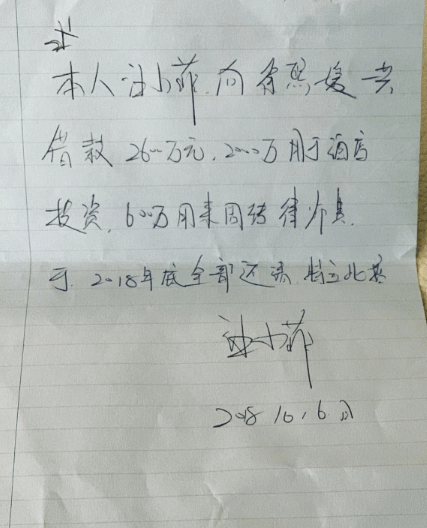 本人汪小菲,向徐熙媛共
借款2600万元,2000万用于酒店
投资,600万用来周转律师费.
于2018年底全部还清.特立此据
汪小菲